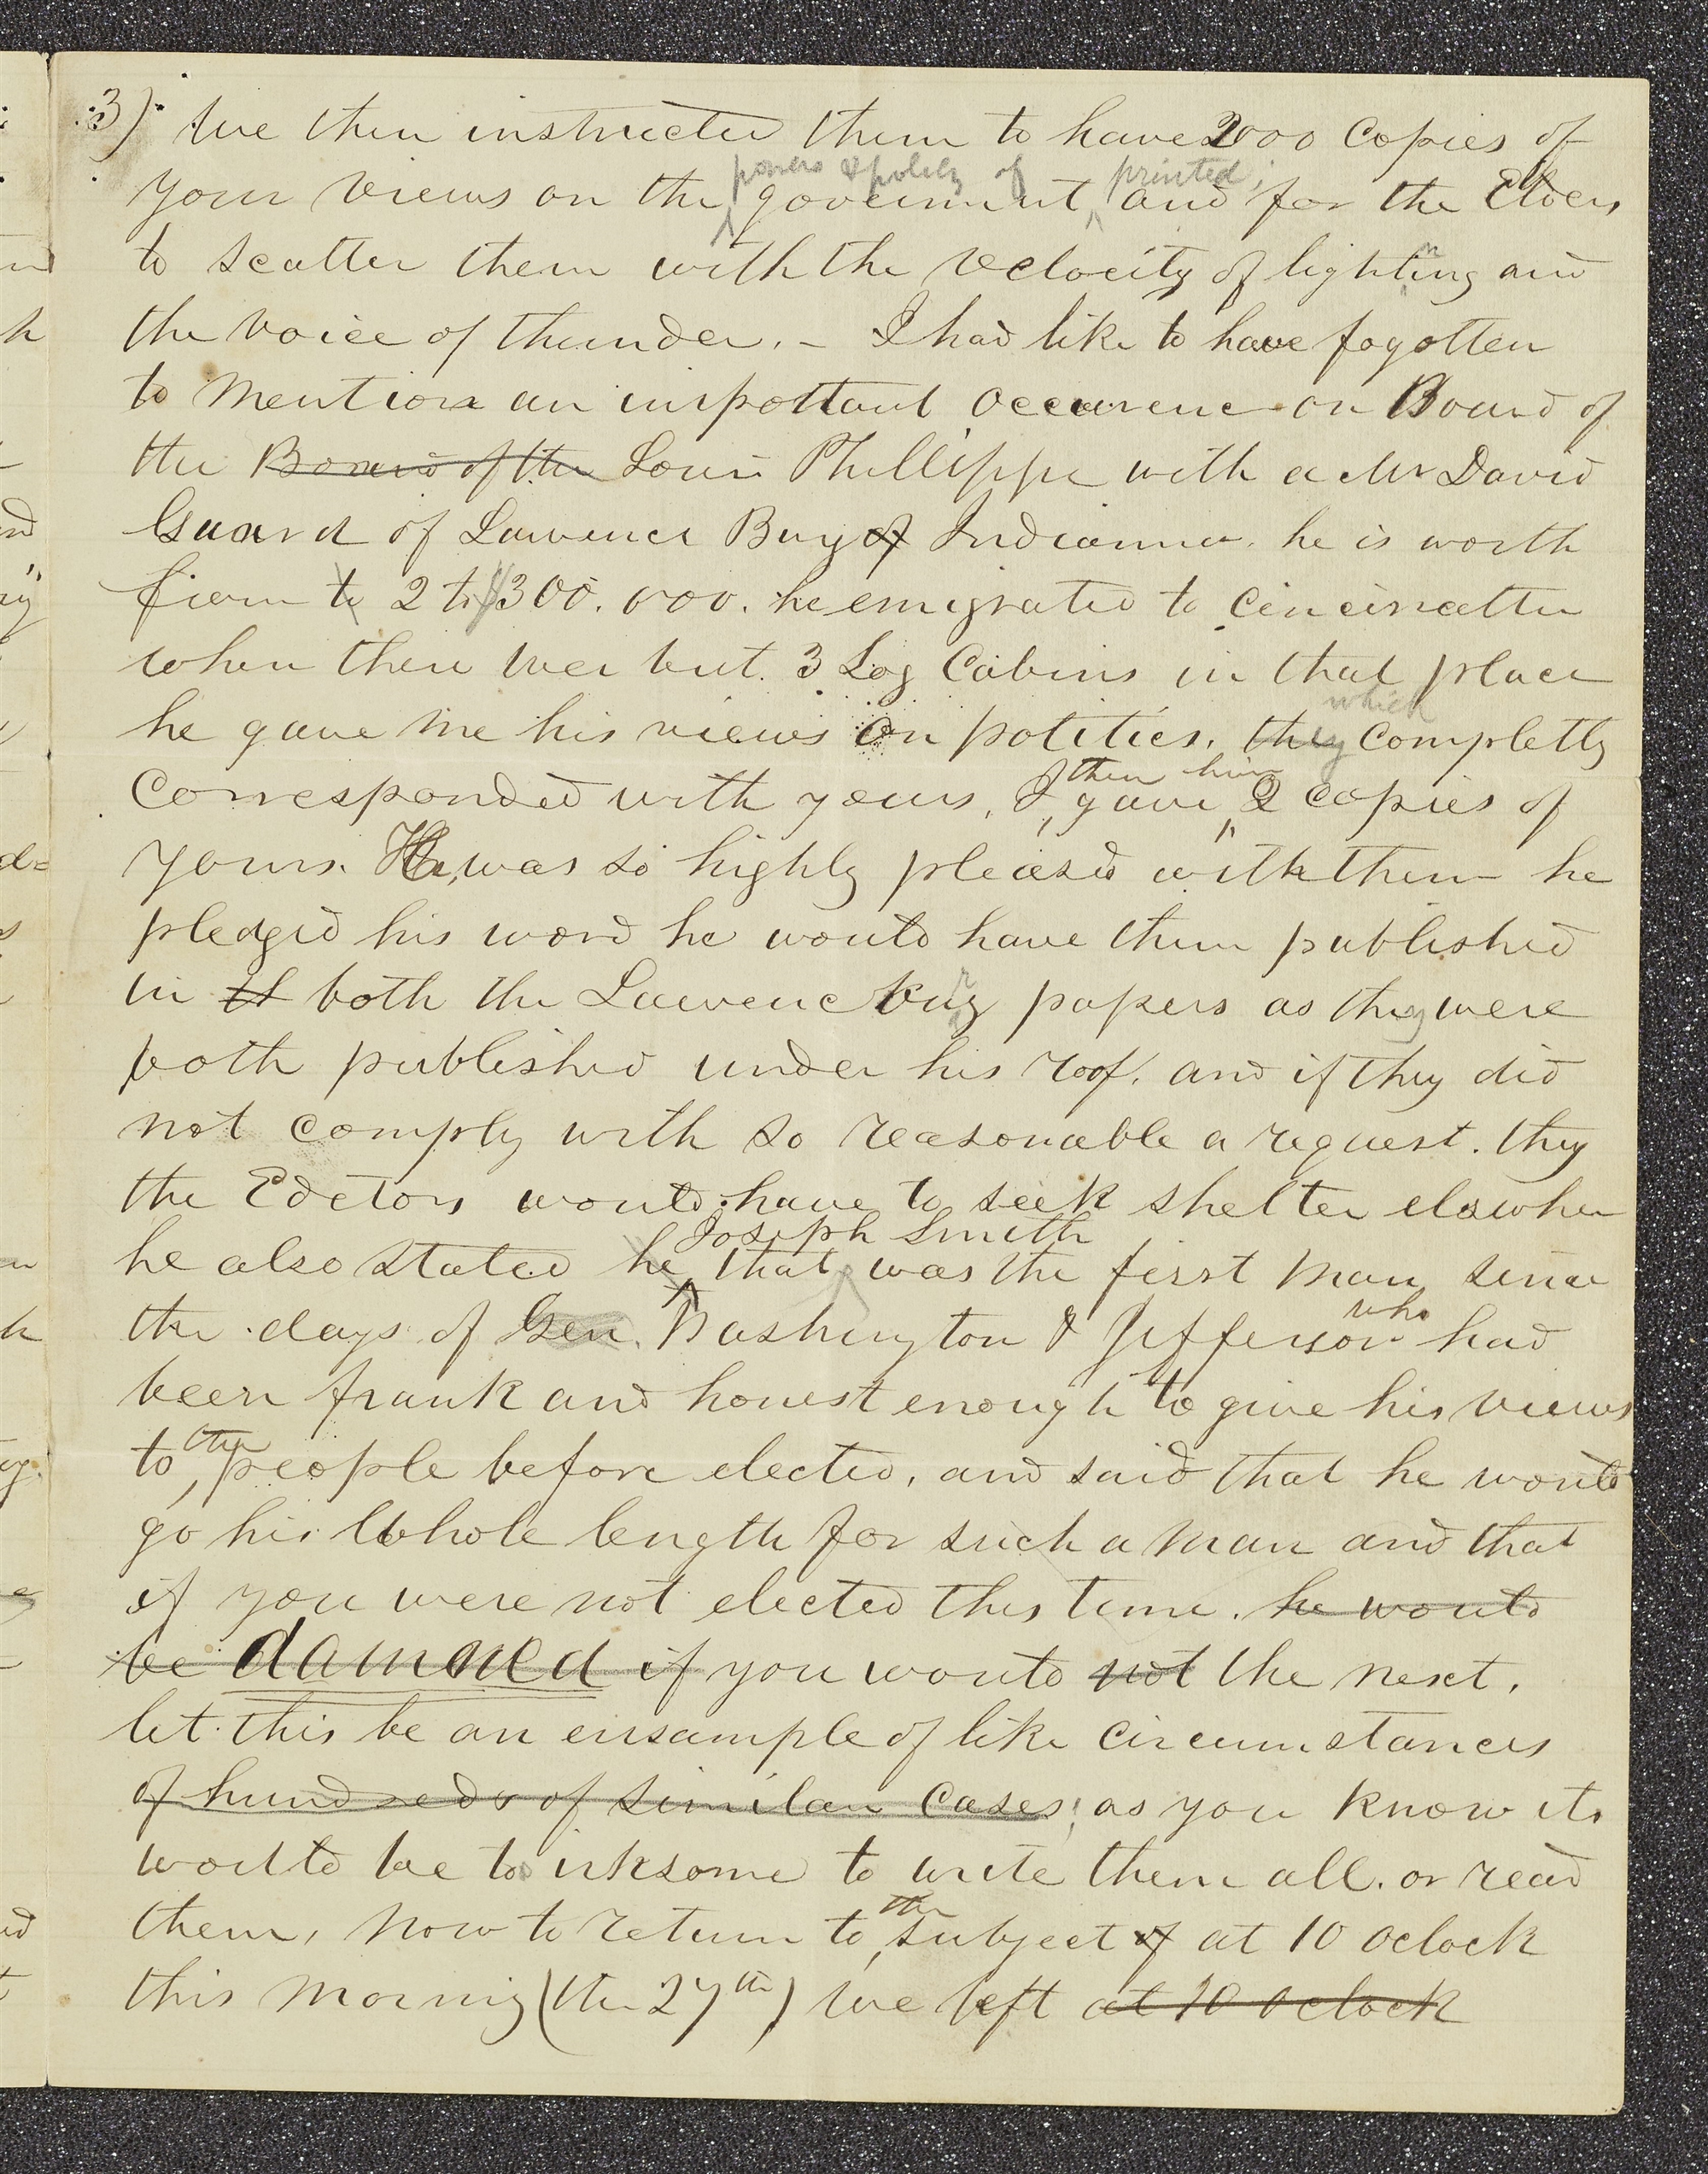 3) We then instructed them to have 2000 Copies of
your views on the powers & policy of goverment, printed; and for the Elders
to scatter them with the velocity of lightning and
the voice of thunder. – I had like to have fogotten
to mention an inportant occurrence on Board of
the Board of the Louis Phillippe with a Mr David
Guard of Lawrence Burg of Indianna. he is worth
from to 2 to $300.000. he emigrated to Cincinatti
when there wer but 3 Log Cabins in that place
he gave me his views on polities. they which completly
Corresponded with yours, I then gave him 2 copies of
yours. He was so highly pleased with them he
pledged his word he would have them published
in th both the Lawrenceburg papers as they were
both published under his roof. and if they did
not comply with so reasonable a request. they
the Editors would have to seek shelter elswher
he also stated he that Joseph Smith was the first man since
the days of Gen. Washington & Jefferson who had
been frank and honest enough to give his views
to the people before elected, and said that he would
go his Whole length for such a man and that
if you were not elected this time. he would
be damned if you would not the next.
let this be an ensample of like circumstances
of hundreds of similar Cases; as you know it
would be to irksome to write them all. or read
them, now to return to the subject of at 10 oclock
this morning (the 27th) we left at 10 oclock